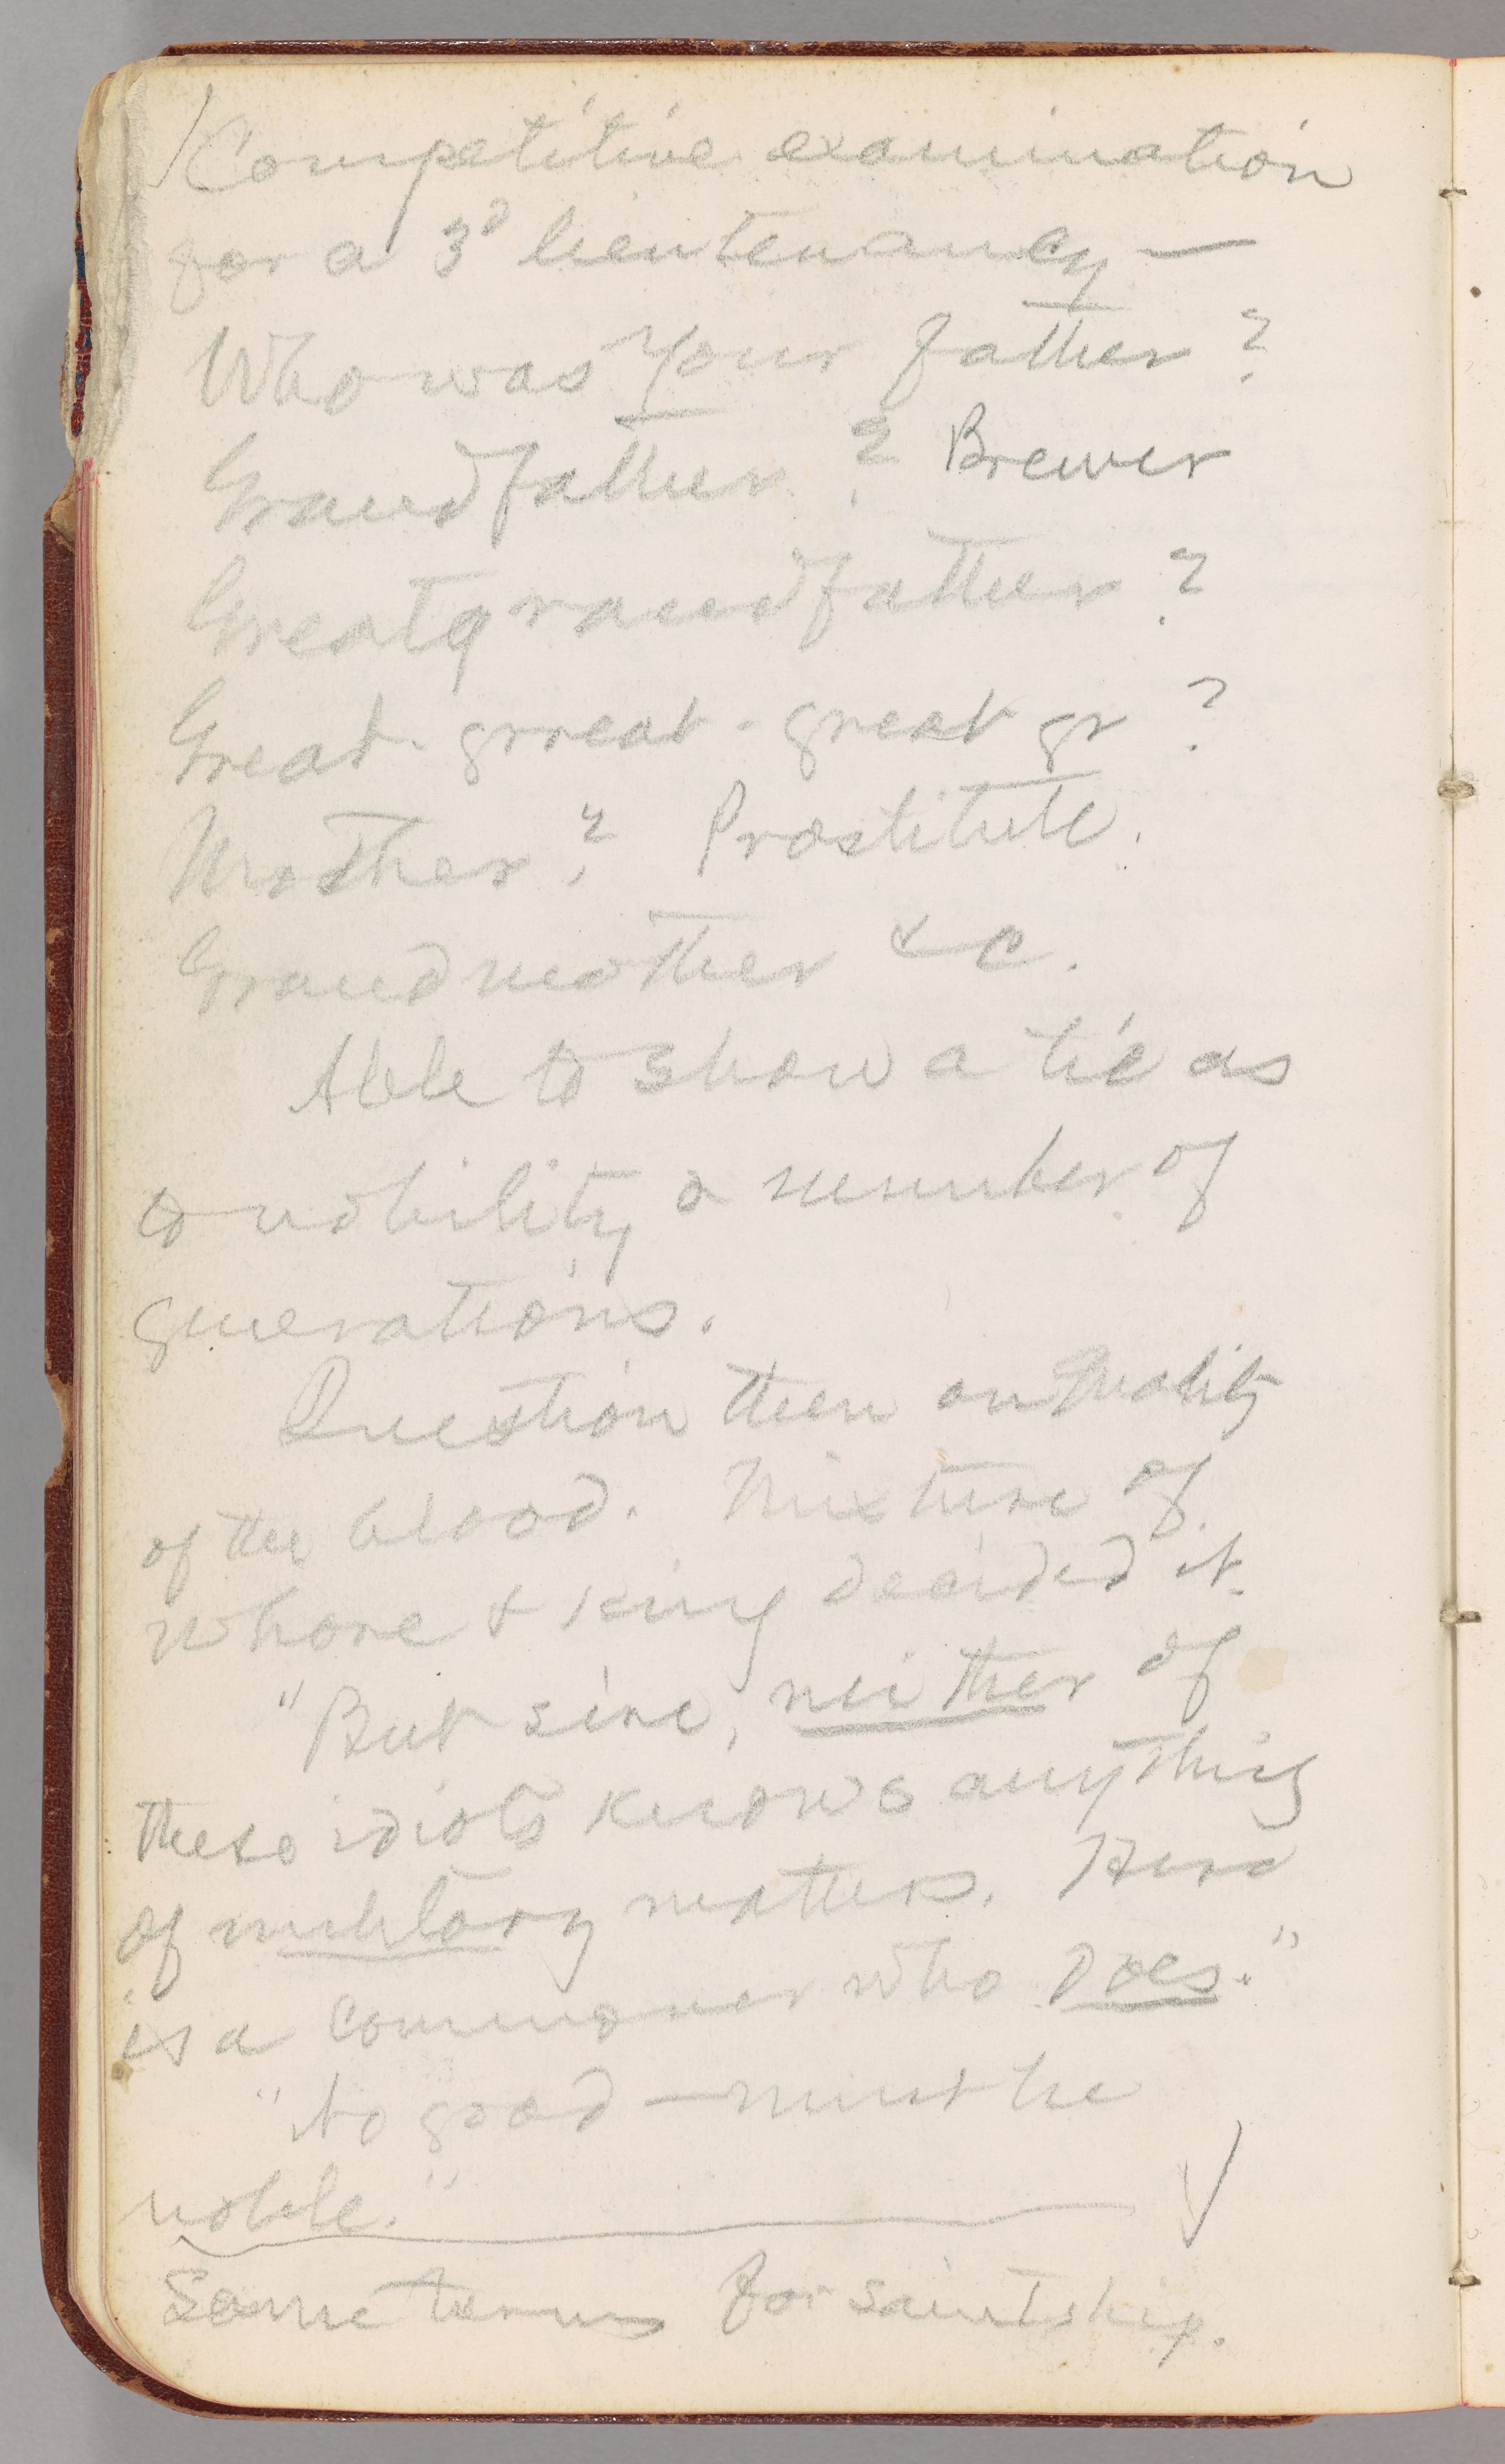 Competitive examination
for a 3d lieutenancy —
Who was your father?
Grandfather? Brewer
Greatgrandfather?
Great-great-great gr?
Mother? Prostitute.
Grandmother &c.
Able to show a tie as
to nobility & number of
generations.
Question then on Quality
of the blood. Mixture of
whore & king decided it.
"But sire, neither of
these idiots knows anything
of military matters. Here
is a commoner who does."
"No good — must be
noble."
Same terms for saintship.